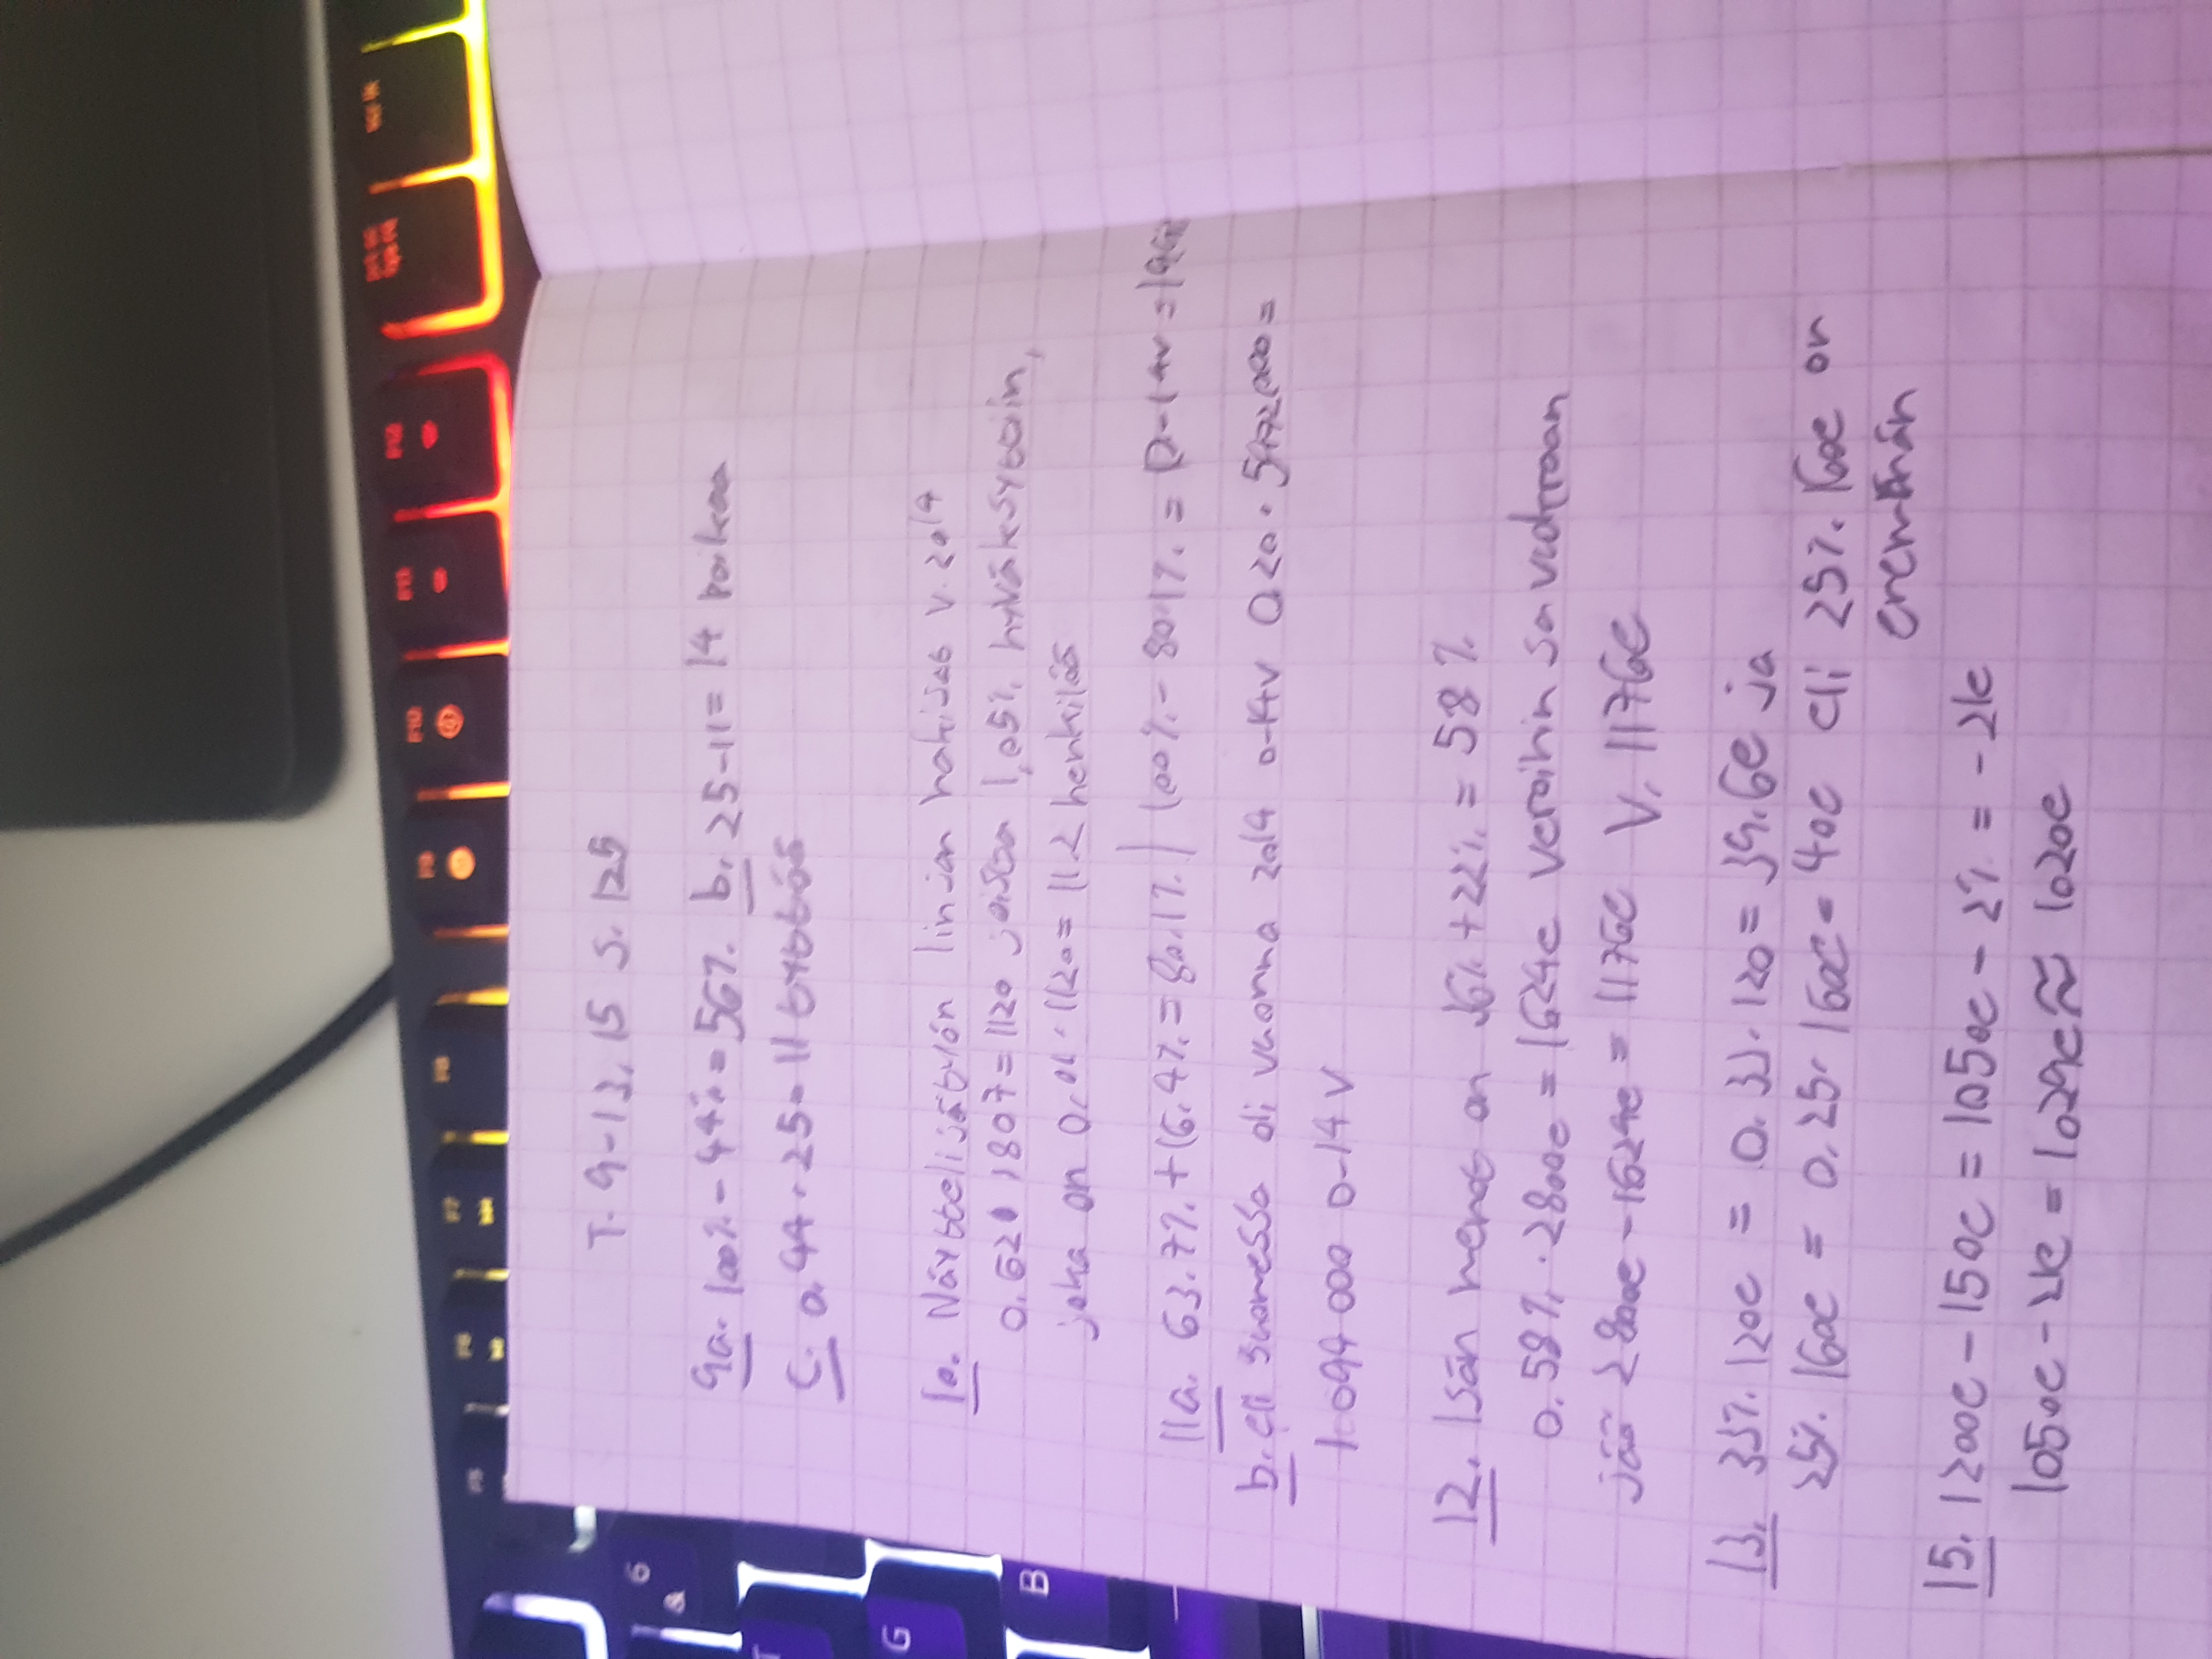 T. 9-13, 15 S. 125
9a. 100% - 44% = 56%. b. 25-11= 14 poikaa
C. 0.44 . 25 = 11 tyttöä
10. Näyttelijätyön linjan hakijat v. 2014
0.620 1807 = 1120 joista 1,05% hyväksyttiin,
joka on 0.01 . 1120 = 11.2 henkilöä
11a. 63.7% + 16.4% = 80.1% | 100% - 80.1% =
b. Eli suomessa oli vuonna 2014 0-14v 0.20 . 5472000 =
1 094 000 0-14 V
12. Isän menot on 36% + 22% = 58%
0.58% . 2800e = 1624e veroihin sa vuotroon
jää 2800e - 1624e = 1176e V. 1176e
13. 33%. 120e = 0.33 . 120 = 39.6e ja
25%. 160e = 0.25 . 160e = 40e eli 25%. 160e on
enemmän
15. 1200e - 150e = 1050e - 2% = -21e
1050e - 21e = 1029e ≈ 1020e
6
&
T
G
B
F5
F6
F7
F8
F9
F10
F11
F12